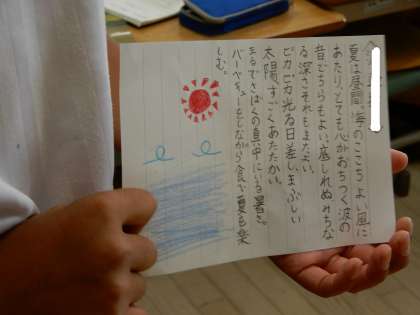 夏は昼間。海のここちよい風に
あたり、とても心がおちつく波の
音どちらもよい。底しれぬみちな
る深さそれもまたよい。
ピカピカ光る日差しまぶしい
太陽すごくあたたかい。
まるでさばくの真中にいる暑さ。
バーベキューをしながら食べ夏を楽
しむ。